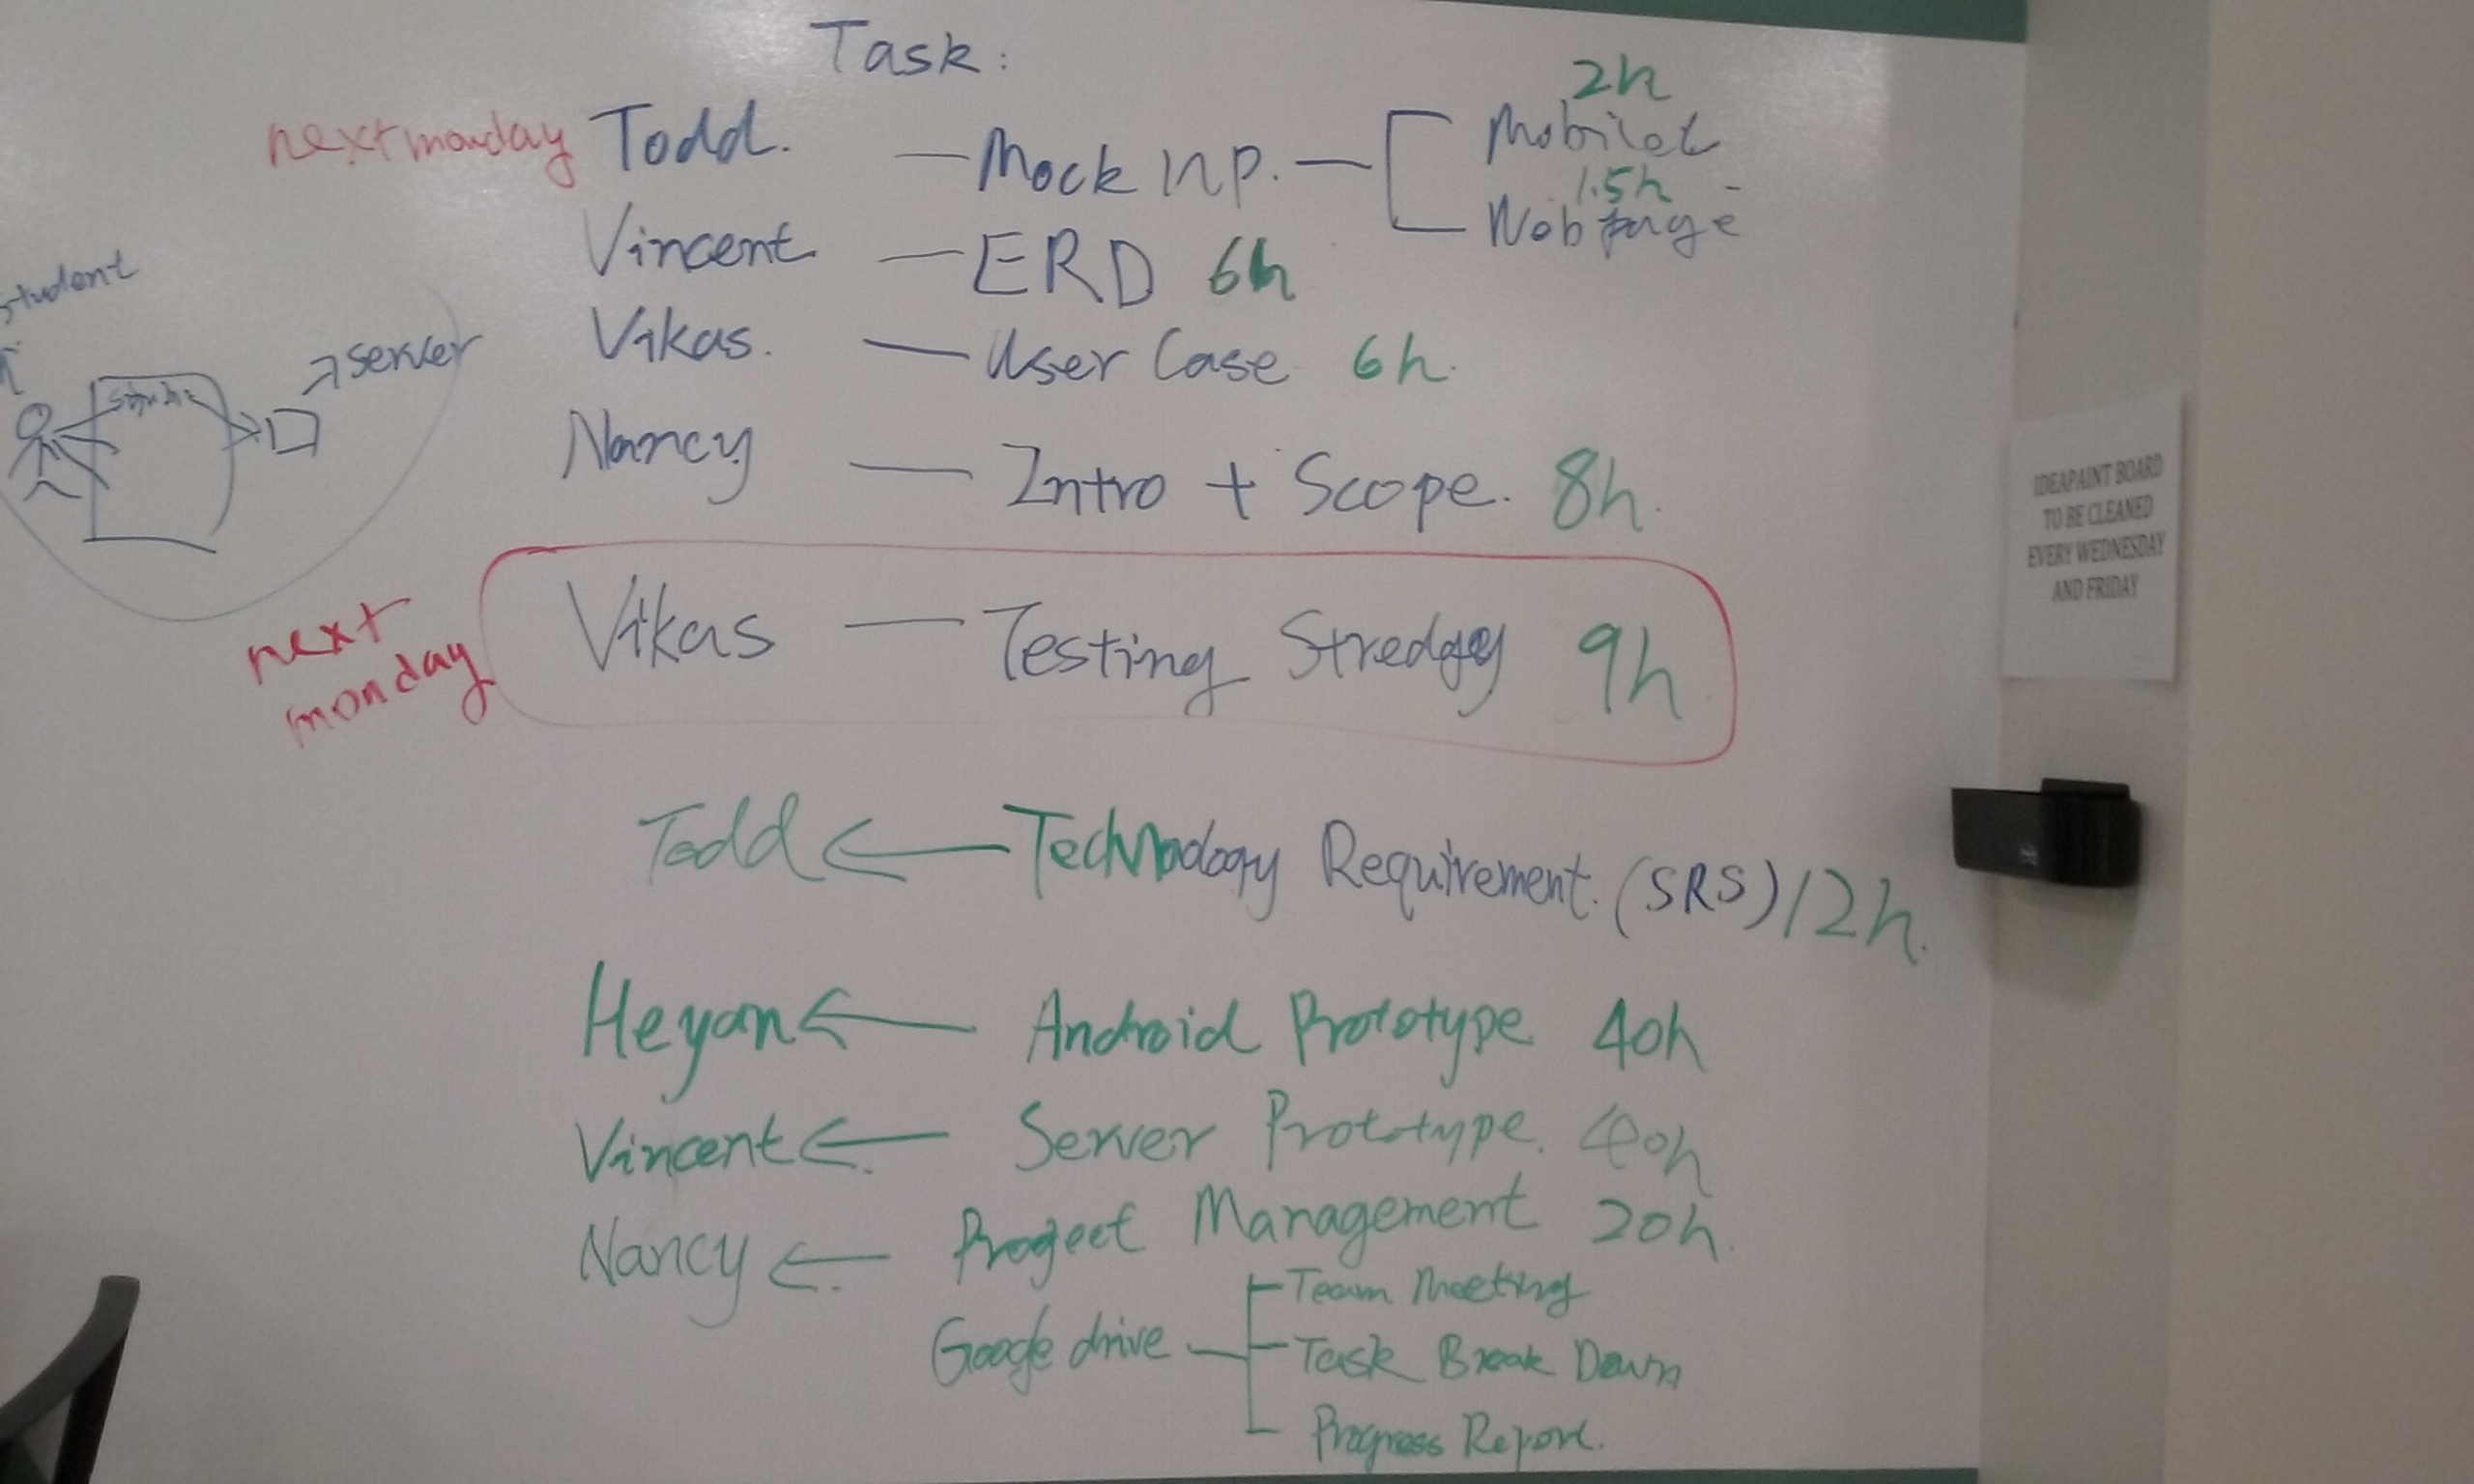 Task:
next monday Todd. — Mock up. —
2h
Mobile
1.5h
Web page
Vincent — ERD 6h
Vikas. — User Case 6h.
Nancy — Intro + Scope. 8h.
student
server
next
monday
Vikas — Testing Stredgey 9h
Todd ← Technology Requirement. (SRS) 12h.
Heyan ← Android Prototype 40h
Vincent ← Server Prototype. 40h
Nancy ← Project Management 20h.
Google drive
Team Meeting
Task Break Down
Progress Report.
IDEAPAINT BOARD
TO BE CLEANED
EVERY WEDNESDAY
AND FRIDAY